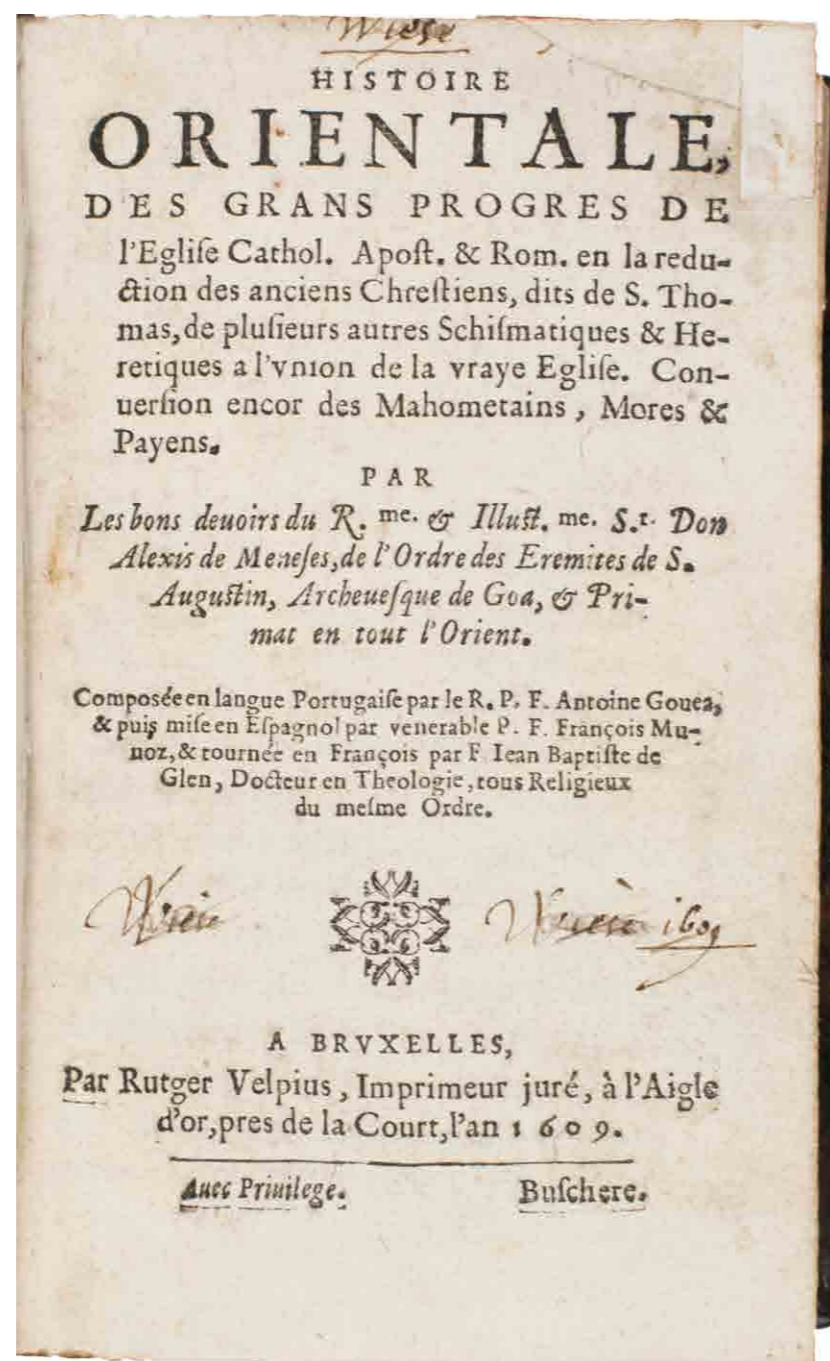 HISTOIRE
ORIENTALE,
DES GRANS PROGRES DE
l'Egliſe Cathol. Apoſt. & Rom. en la redu-
ction des anciens Chreſtiens, dits de S. Tho-
mas, de pluſieurs autres Schiſmatiques & He-
retiques a l'vnion de la vraye Egliſe. Con-
uerſion encor des Mahometains, Mores &
Payens.
PAR
Les bons deuoirs du R. me. & Illuſt. me. S.r. Don
Alexis de Meneſes, de l'Ordre des Eremites de S.
Auguſtin, Archeueſque de Goa, & Pri-
mat en tout l'Orient.
Compoſée en langue Portugaiſe par le R. P. F. Antoine Gouea,
& puis miſe en Eſpagnol par venerable P. F. François Mu-
noz, & tournée en François par F. Iean Baptiſte de
Glen, Docteur en Theologie, tous Religieux
du meſme Ordre.
1609
A BRVXELLES,
Par Rutger Velpius, Imprimeur juré, à l'Aigle
d'or, pres de la Court, l'an 1609.
Auec Priuilege. Buſchere.